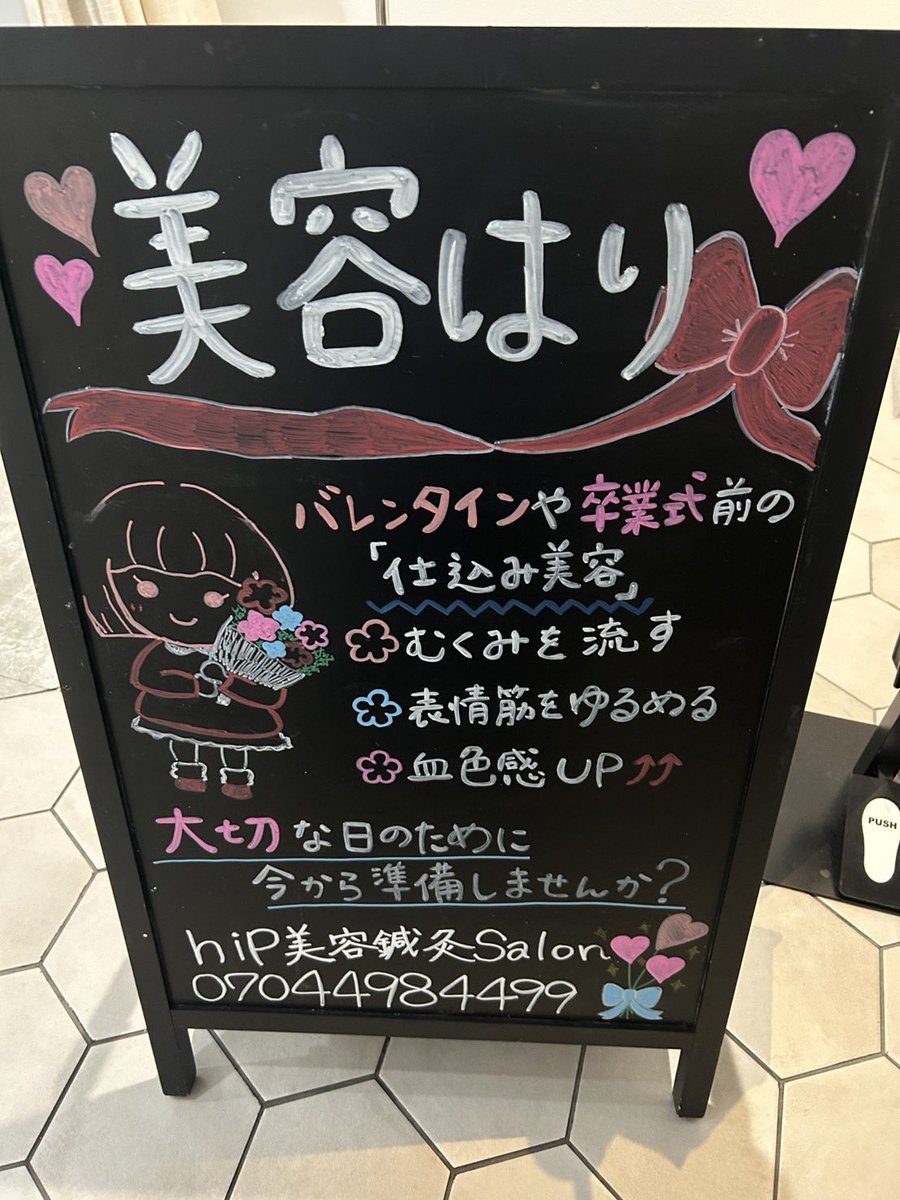 美容はり
バレンタインや卒業式前の
「仕込み美容」
むくみを流す
表情筋をゆるめる
血色感UP↑↑
大切な日のために
今から準備しませんか?
hiP美容鍼灸Salon
07044984499
PUSH